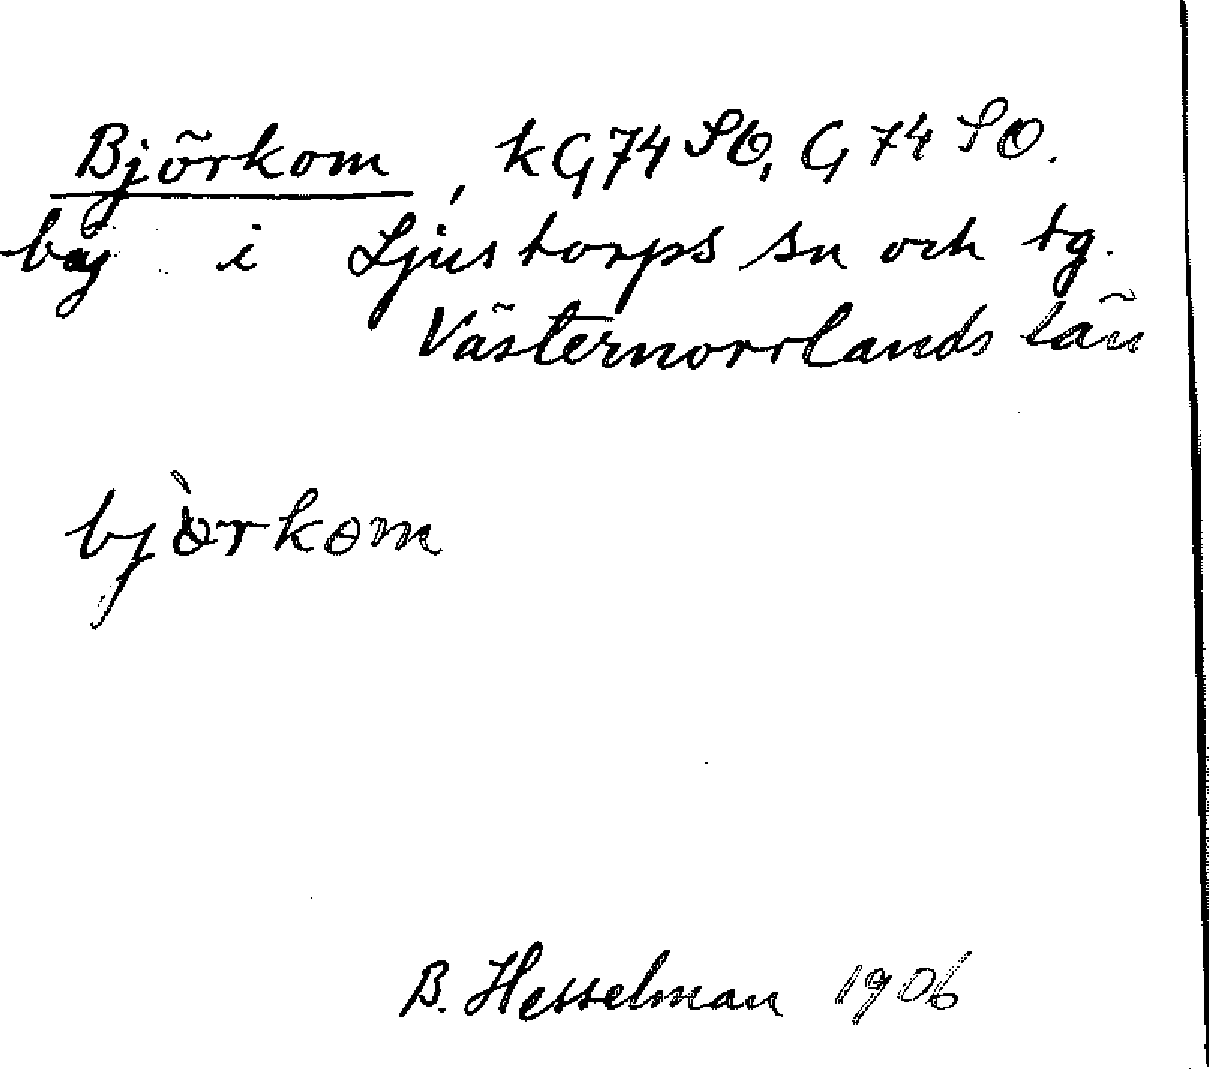 Björkom, kG74SO, G74SO.
by i Ljustorps sn och tg.
Västernorrlands län
bjòrkom
B. Hesselman 1906